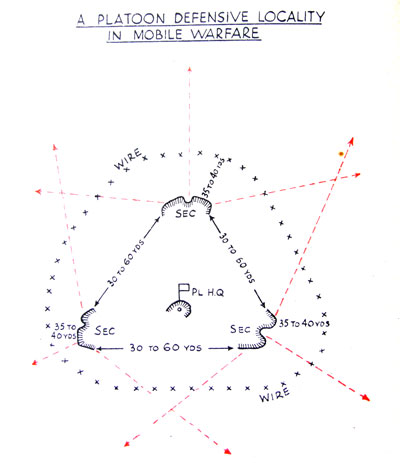 A PLATOON DEFENSIVE LOCALITY
IN MOBILE WARFARE
WIRE
35 TO 40 YDS
SEC
30 TO 60 YDS
30 TO 60 YDS
PL H.Q
35 TO
40 YDS
SEC
SEC
35 TO 40 YDS
30 TO 60 YDS
WIRE